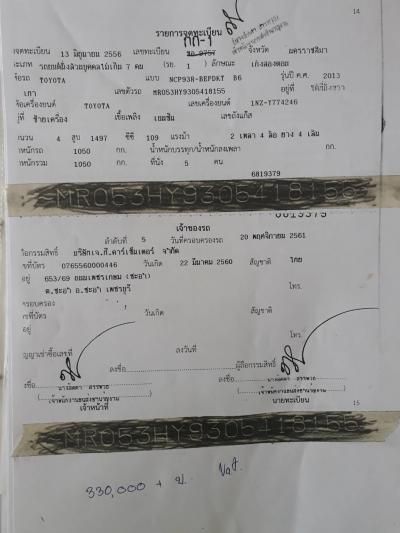 14
รายการจดทะเบียน
กก-1
จดทะเบียน 13 มิถุนายน 2556 เลขทะเบียน จังหวัด นครราชสีมา
รถยนต์นั่งส่วนบุคคลไม่เกิน 7 คน (รย. 1) ลักษณะ เก๋งสองตอน
รถ TOYOTA แบบ NCP93R-BEPDKT B6 รุ่นปี ค.ศ. 2013
เทา เลขตัวรถ MR053HY9305418155 อยู่ที่
เครื่องยนต์ TOYOTA เลขเครื่องยนต์ 1NZ-Y774246
ที่ ซ้ายเครื่อง เชื้อเพลิง เบนซิน เลขถังแก๊ส
จำนวน 4 สูบ 1497 ซีซี 109 แรงม้า 2 เพลา 4 ล้อ ยาง 4 เส้น
น้ำหนักรถ 1050 กก. น้ำหนักบรรทุก/น้ำหนักลงเพลา กก.
น้ำหนักรวม 1050 กก. ที่นั่ง 5 คน
6819379
MR053HY9305418155
6819379
เจ้าของรถ
ลำดับที่ 5 วันที่ครอบครองรถ 20 พฤศจิกายน 2561
ผู้ถือกรรมสิทธิ์ บริษัทเจ.ก๊.คาร์เซ็นเตอร์ จำกัด
เลขที่บัตร 0765560000446 วันเกิด 22 มีนาคม 2560 สัญชาติ ไทย
ที่อยู่ 653/69 ถนนเพชรเกษม (ชะอำ)
ต.ชะอำ อ.ชะอำ เพชรบุรี โทร.
ผู้ครอบครอง
เลขที่บัตร วันเกิด สัญชาติ
ที่อยู่
โทร.
สัญญาเช่าซื้อเลขที่ ลงวันที่
ลงชื่อ ผู้ถือกรรมสิทธิ์
ลงชื่อ ลงชื่อ
เจ้าหน้าที่ นายทะเบียน
15
MR053HY9305418155
330,000 + ข. Vat.